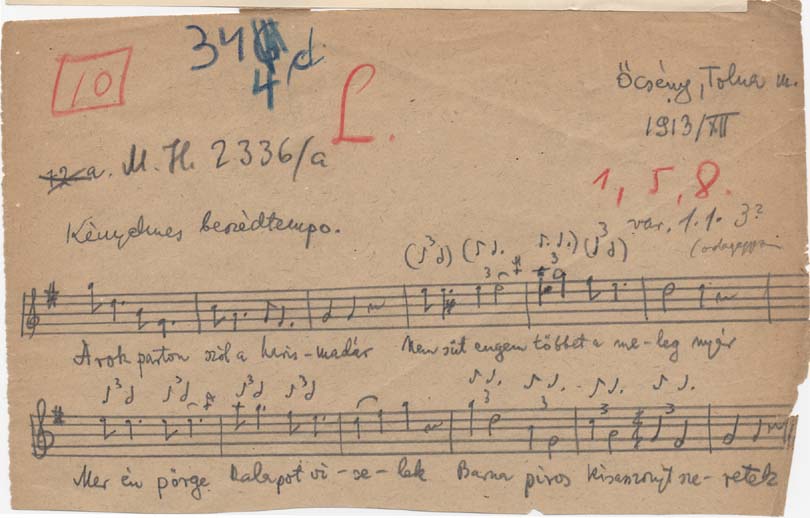 10
34 4 d.
L.
Őcsény, Tolna m.
1913/XII
12 a. M. H. 2336/a
1, 5, 8.
var. 1.1. 3?
Kényelmes beszédtempo.
Árok parton szól a kis-madár Nem süt engem többet a me-leg nyár
Mer én pörge kalapot vi-se-lek Barna piros kisasszonyt sze-retek